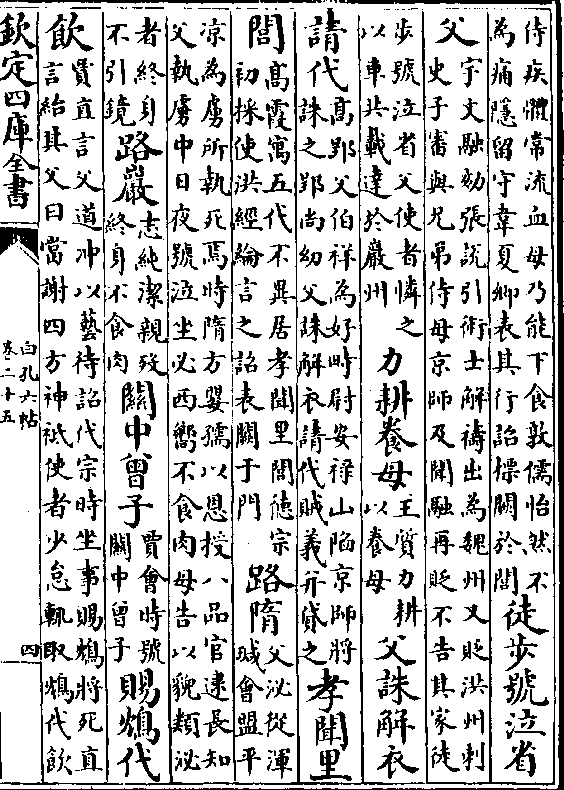 侍疾體常流血母乃能下食敦儒怡然不
為痛隱留守韋夏卿表其行詔標闕於閭
徒步號泣省
父
宇文融劾張說引術士解禱出為魏州又貶洪州刺
史子審與兄弟侍母京師及聞融再貶不告其家徒
步號泣省父使者憐之
以車共載達於嚴州
力耕養母
王質力耕
以養母
父誅解衣
請代
高郢父伯祥為好畤尉安祿山陷京師將
誅之郢尚幼父誅解衣請代賊義并貸之
孝聞里
閭
高霞寓五代不異居孝聞里閭德宗
初採使洪經綸言之詔表闕于門
路隋
父泌從渾
瑊會盟平
凉為虜所執死焉時隋方嬰孺以恩授八品官逮長知
父執虜中日夜號泣坐必西嚮不食肉母告以貌類泌
者終身
不引鏡
路巖
志純潔親歿
終身不食肉
關中曾子
賈會時號
關中曾子
賜鴆代
飲
賈直言父道冲以藝待詔代宗時坐事賜鴆將死直
言紿其父曰當謝四方神祇使者少怠輒取鴆代飲
欽定四庫全書
白孔六帖
卷二十五
四